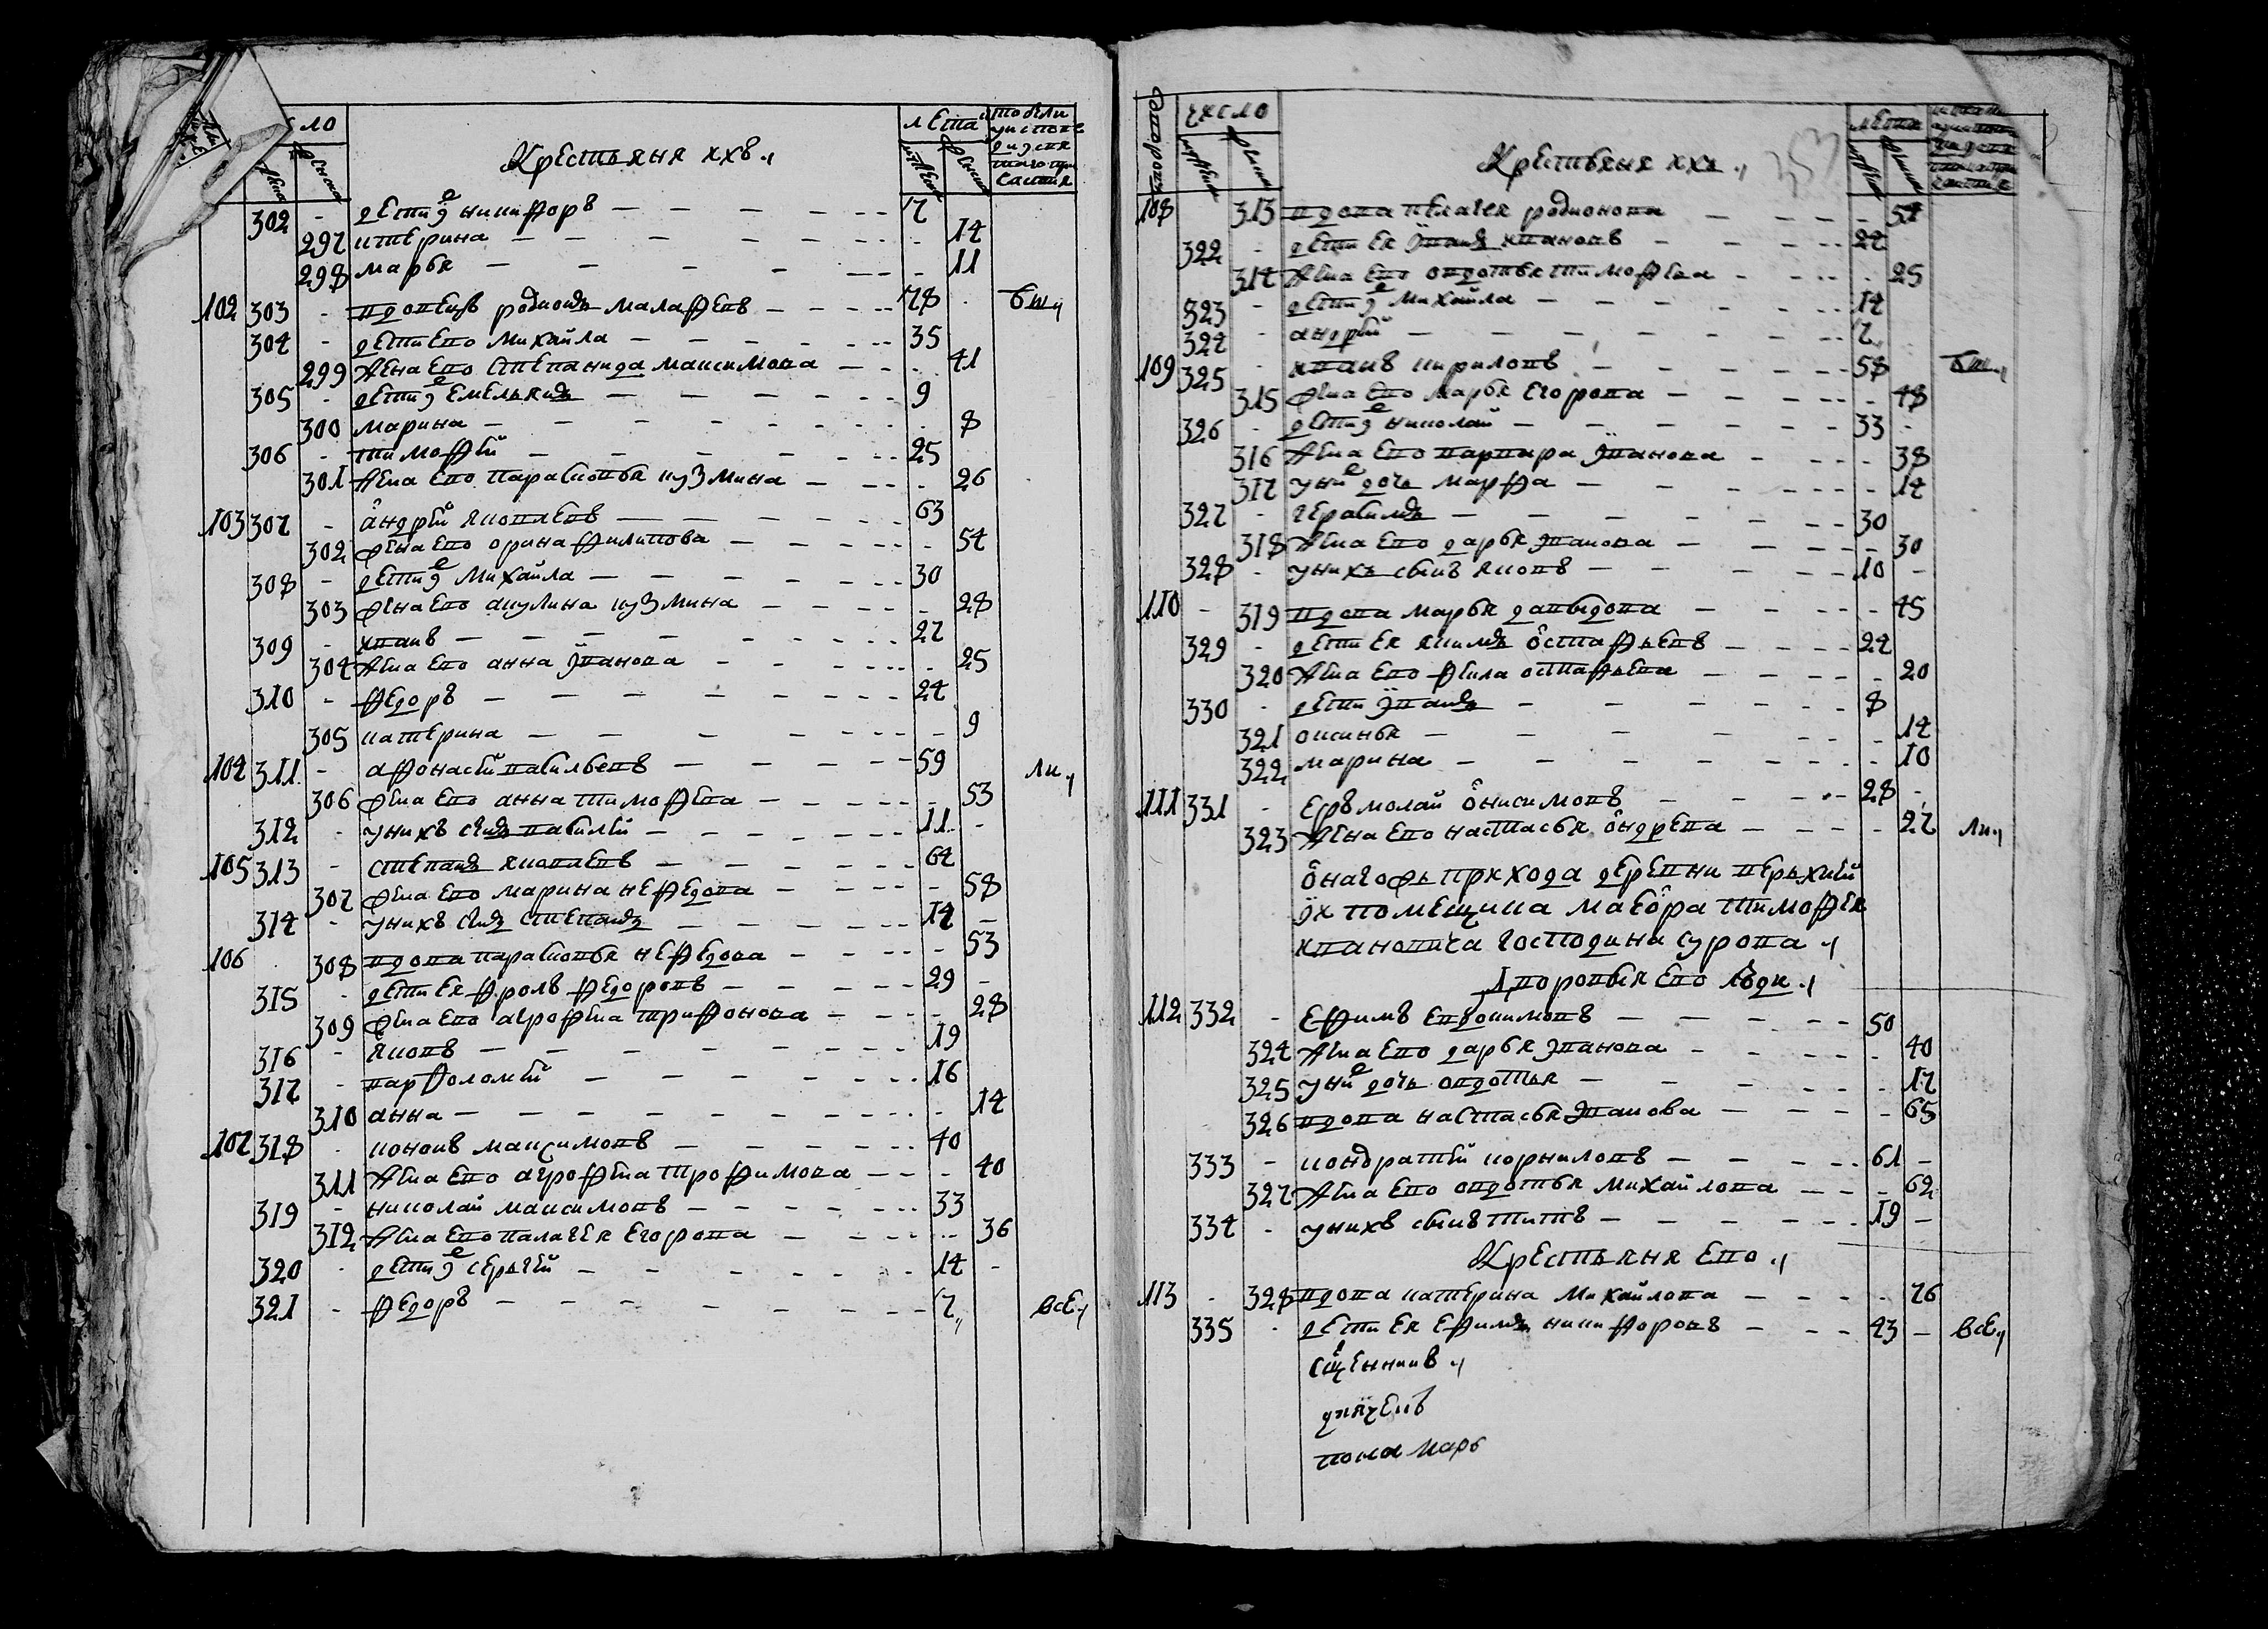 число
лета
Крестьяня ихъ
302 - дети е никифоръ - 7
297 катерина - 14
298 марья - 11
102 303 - вдовецъ родионъ малафевъ - 78 бы
304 - дети ево михайла - 35
299 жена ево степанида максимова - 41
305 - дети е емельянъ - 9
300 марина - 8
306 - тимофѣй - 25
301 жена ево парасковья кузмина - 26
103 307 - андрѣй яковлевъ - 63
302 жена ево орина филипова - 54
308 - дети е михайла - 30
303 жена ево акулина кузмина - 28
309 - иванъ - 27
304 жена ево анна иванова - 25
310 - федоръ - 24
305 катерина - 9
104 311 - афонасѣй васильевъ - 59 ли
306 жена ево анна тимофѣва - 53
312 - у нихъ сынъ василѣй - 11 -
105 313 - степанъ яковлевъ - 64
307 жена ево марина нефедова - 58
314 - у нихъ сынъ степанъ - 14 -
106 308 вдова парасковья нефедова - 53
315 - дети ея фролъ федоровъ - 29 -
309 жена ево агрофѣна трифонова - 28
316 - яковъ - 19
317 - варфоломѣй - 16
310 анна - 14
107 318 кононъ максимовъ - 40
311 жена ево агрофѣна трофимова - 40
319 - николай максимовъ - 33
312 жена ево палагея егорова - 36
320 - дети е сергѣй - 14 -
321 - федоръ - 7 все
число
лета
Крестьяня ихъ
108 313 вдова пелагея родионова - 54
322 - дети ея иванъ ивановъ - 24
314 жена ево овдотья тимофѣва - 25
323 - дети е михайла - 14
324 - андрѣй - 7
109 325 - иванъ кириловъ - 58 бы
315 жена ево марья егорова - 48
326 - дети е николай - 33 -
316 жена ево варвара иванова - 38
317 у ни дочь марфа - 14
327 - герасимъ - 30
318 жена ево дарья иванова - 30
328 - у нихъ сынъ яковъ - 10 -
110 - 319 вдова марья давыдова - 45
329 - дети ея якимъ остафьевъ - 24
320 жена ево фекла остафьева - 20
330 - дети иванъ - 8
321 оксинья - 14
322 марина - 10
111 331 - ермолай онисимовъ - 28 -
323 жена ево настасья ондрева - 27 ли
онагожь прихода деревни верьхней
их помещика маеора тимофея
ивановича господина сурова
дворовыя ево люди
112 332 - ефимъ евдокимовъ - 50
324 жена ево дарья иванова - 40
325 у ни дочь овдотья - 17
326 вдова настасья иванова - 65
333 - кондратѣй корниловъ - 61 -
327 жена ево овдотья михайлова - 62
334 - у нихъ сынъ титъ - 19 -
Крестьяня ево
113 - 328 вдова катерина михайлова - 76
335 - дети ея ефимъ никифоровъ - 43 - все
сщенникъ
дьячекъ
пономарь